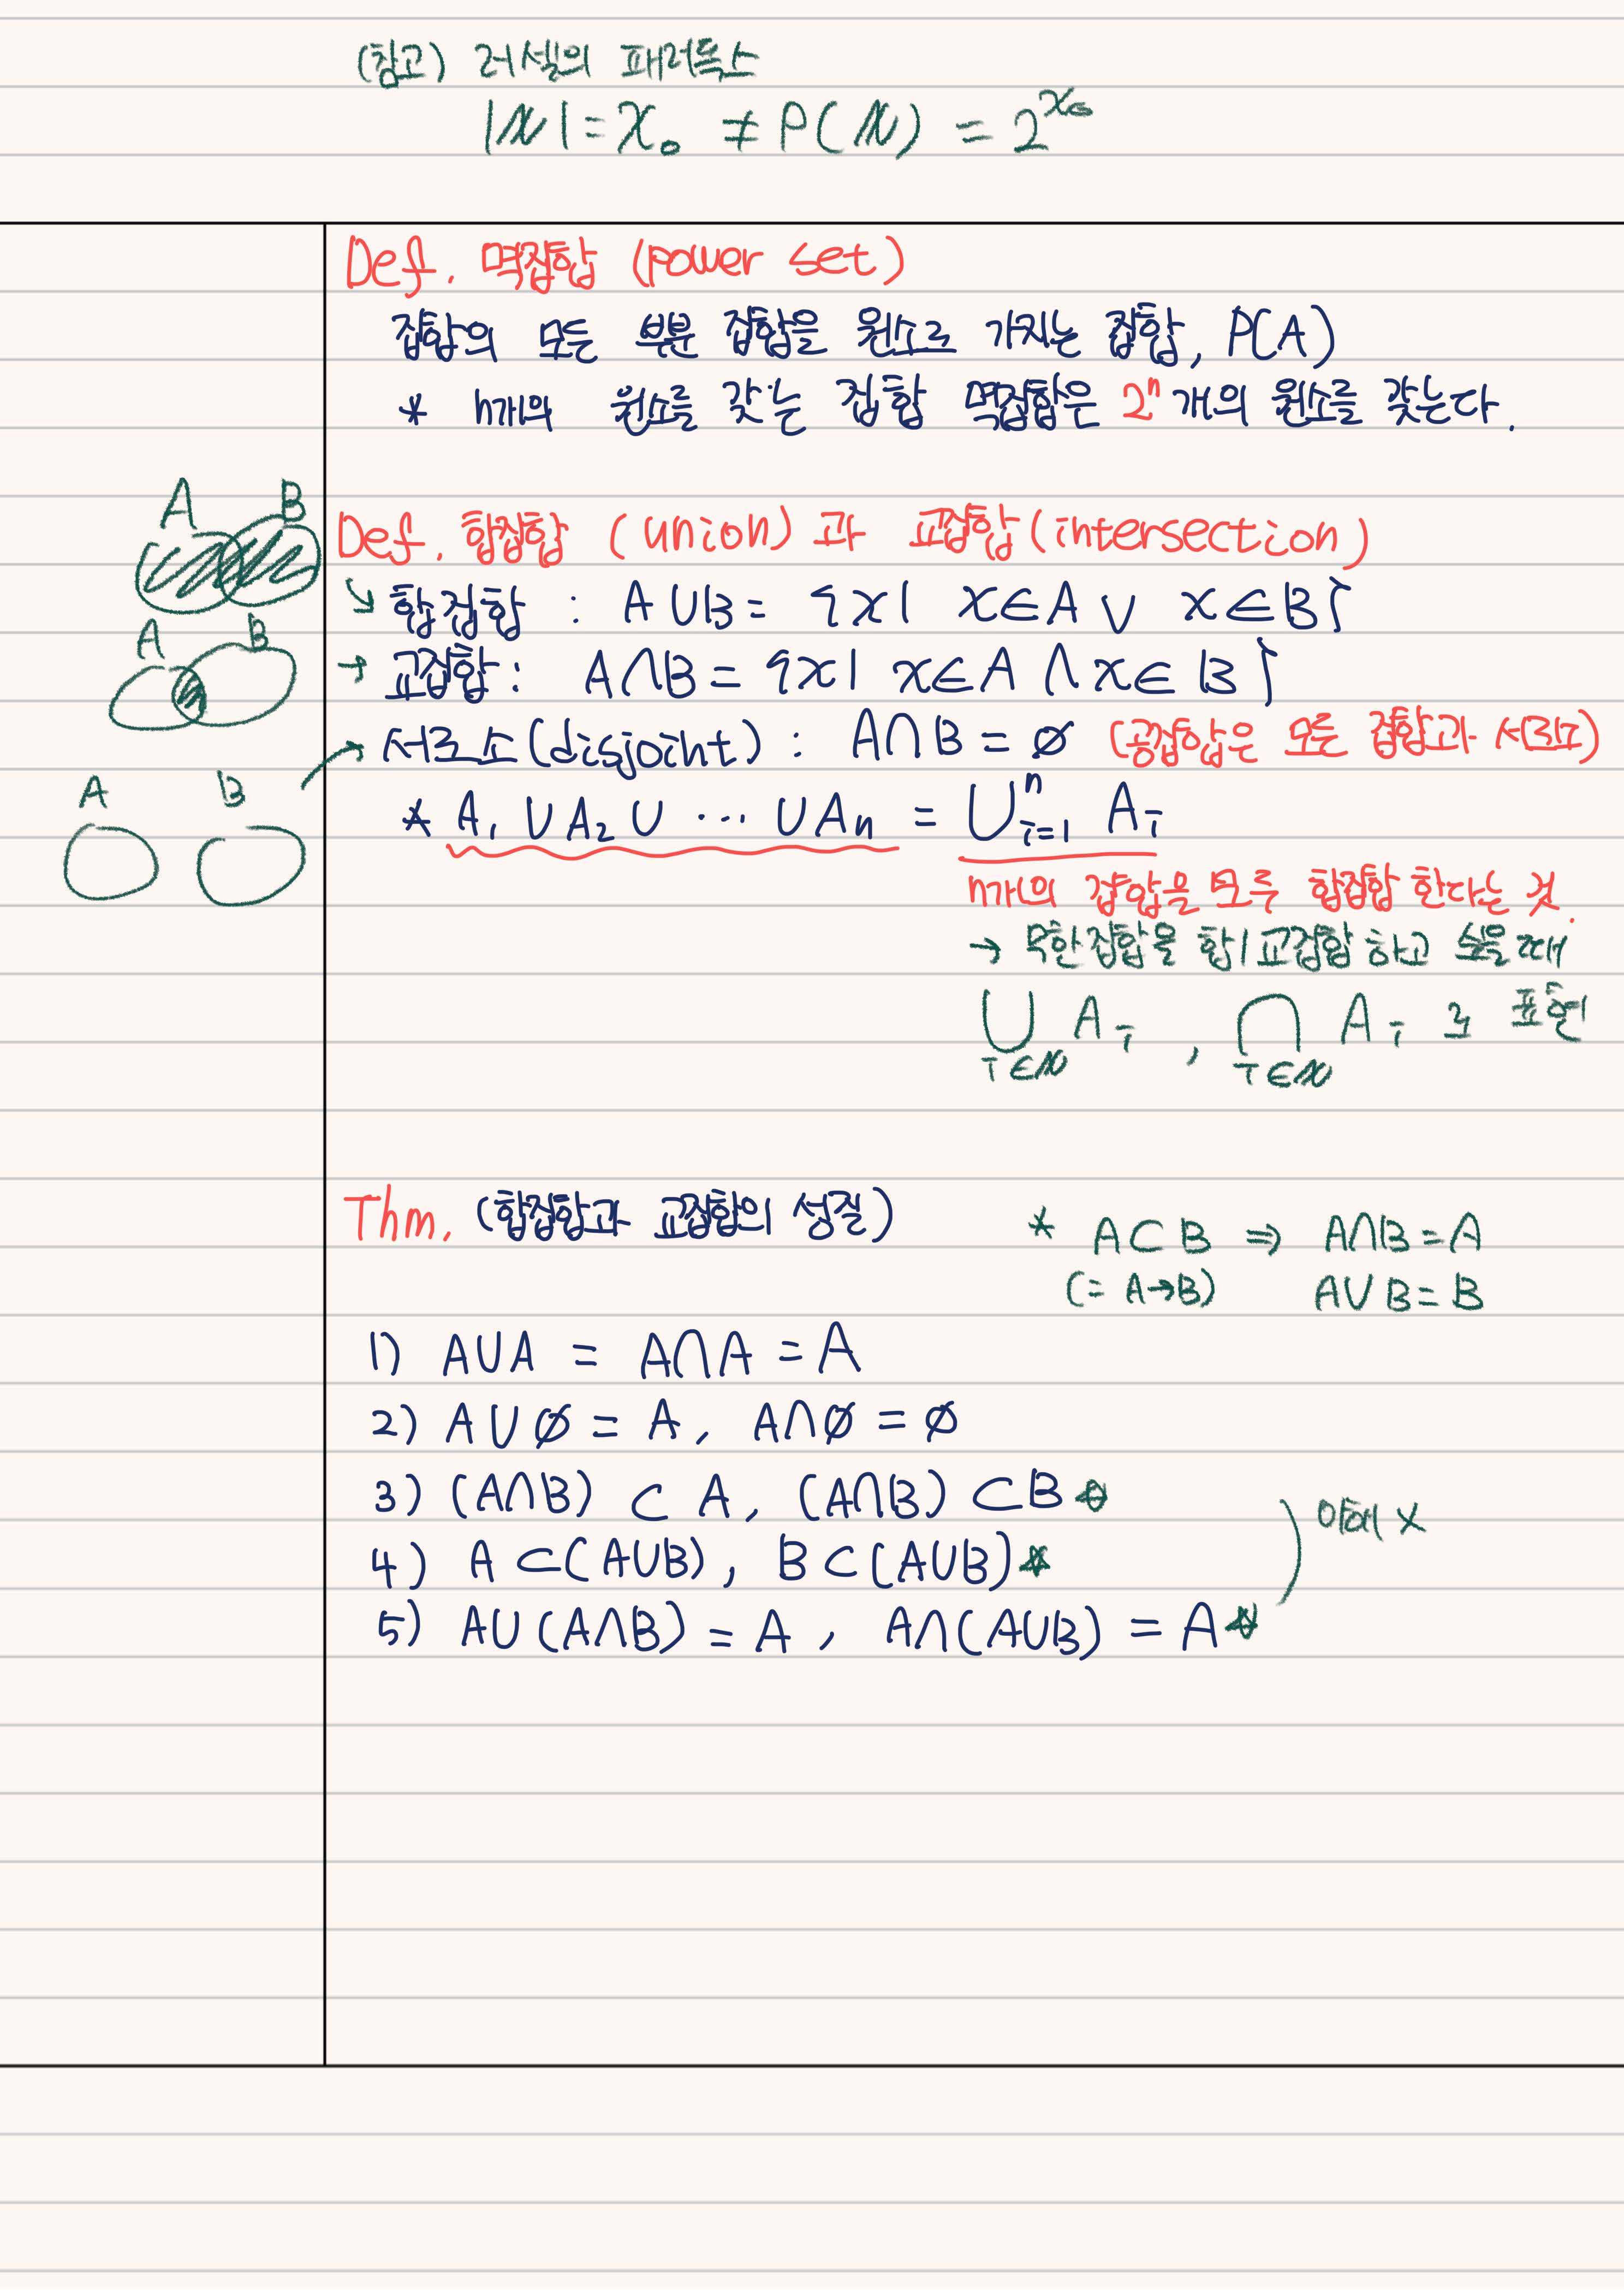 (참고) 러셀의 패러독스
|ℕ| = χ₀ ≠ P(ℕ) = 2^χ₀
Def. 멱집합 (power set)
집합의 모든 부분 집합을 원소로 가지는 집합, P(A)
* n개의 원소를 갖는 집합 멱집합은 2ⁿ개의 원소를 갖는다.
A B
Def. 합집합 (union) 과 교집합 (intersection)
↘ 합집합 : A∪B = {x | x∈A ∨ x∈B}
A B
→ 교집합 : A∩B = {x | x∈A ∧ x∈B}
→ 서로소 (disjoint) : A∩B = ∅ (공집합은 모든 집합과 서로소)
A B
* A₁ ∪ A₂ ∪ ⋯ ∪ Aₙ = ⋃ⁿᵢ₌₁ Aᵢ
n개의 집합을 모두 합집합 한다는 것.
→ 무한집합을 합/교집합 하고 싶을 때
⋃ᵢ∈ℕ Aᵢ , ⋂ᵢ∈ℕ Aᵢ 로 표현
Thm. (합집합과 교집합의 성질)
* A⊂B ⇒ A∩B = A
(= A→B) A∪B = B
1) A∪A = A∩A = A
2) A∪∅ = A, A∩∅ = ∅
3) (A∩B) ⊂ A, (A∩B) ⊂ B ☆
4) A⊂(A∪B), B⊂(A∪B) ☆
) 이해 X
5) A∪(A∩B) = A, A∩(A∪B) = A ☆